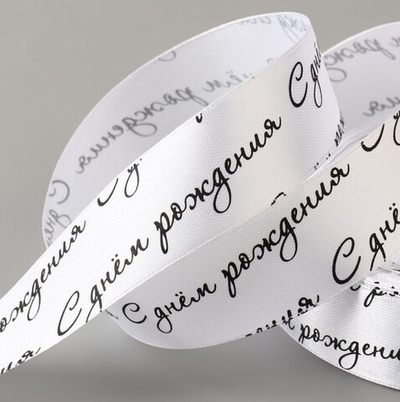 С днём рождения
С днём рождения
С днём рождения
рождения
С днём
рождения